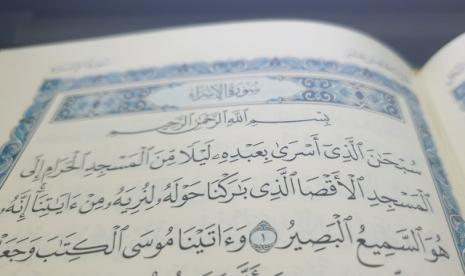 سُورَةُ الإِسۡرَاءِ
بِسۡمِ ٱللَّهِ ٱلرَّحۡمَٰنِ ٱلرَّحِيمِ
سُبۡحَٰنَ ٱلَّذِيٓ أَسۡرَىٰ بِعَبۡدِهِۦ لَيۡلٗا مِّنَ ٱلۡمَسۡجِدِ ٱلۡحَرَامِ إِلَى
ٱلۡمَسۡجِدِ ٱلۡأَقۡصَا ٱلَّذِي بَٰرَكۡنَا حَوۡلَهُۥ لِنُرِيَهُۥ مِنۡ ءَايَٰتِنَآۚ إِنَّهُۥ
هُوَ ٱلسَّمِيعُ ٱلۡبَصِيرُ ١ وَءَاتَيۡنَا مُوسَى ٱلۡكِتَٰبَ وَجَعَ